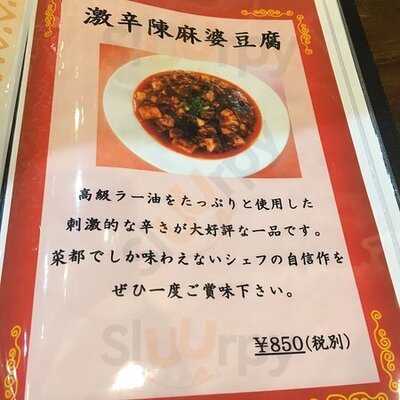 激辛陳麻婆豆腐
高級ラー油をたっぷりと使用した
刺激的な辛さが大好評な一品です。
菜都でしか味わえないシェフの自信作を
ぜひ一度ご賞味下さい。
¥850(税別)
Sluurpy
Sluurpy
Sluurpy